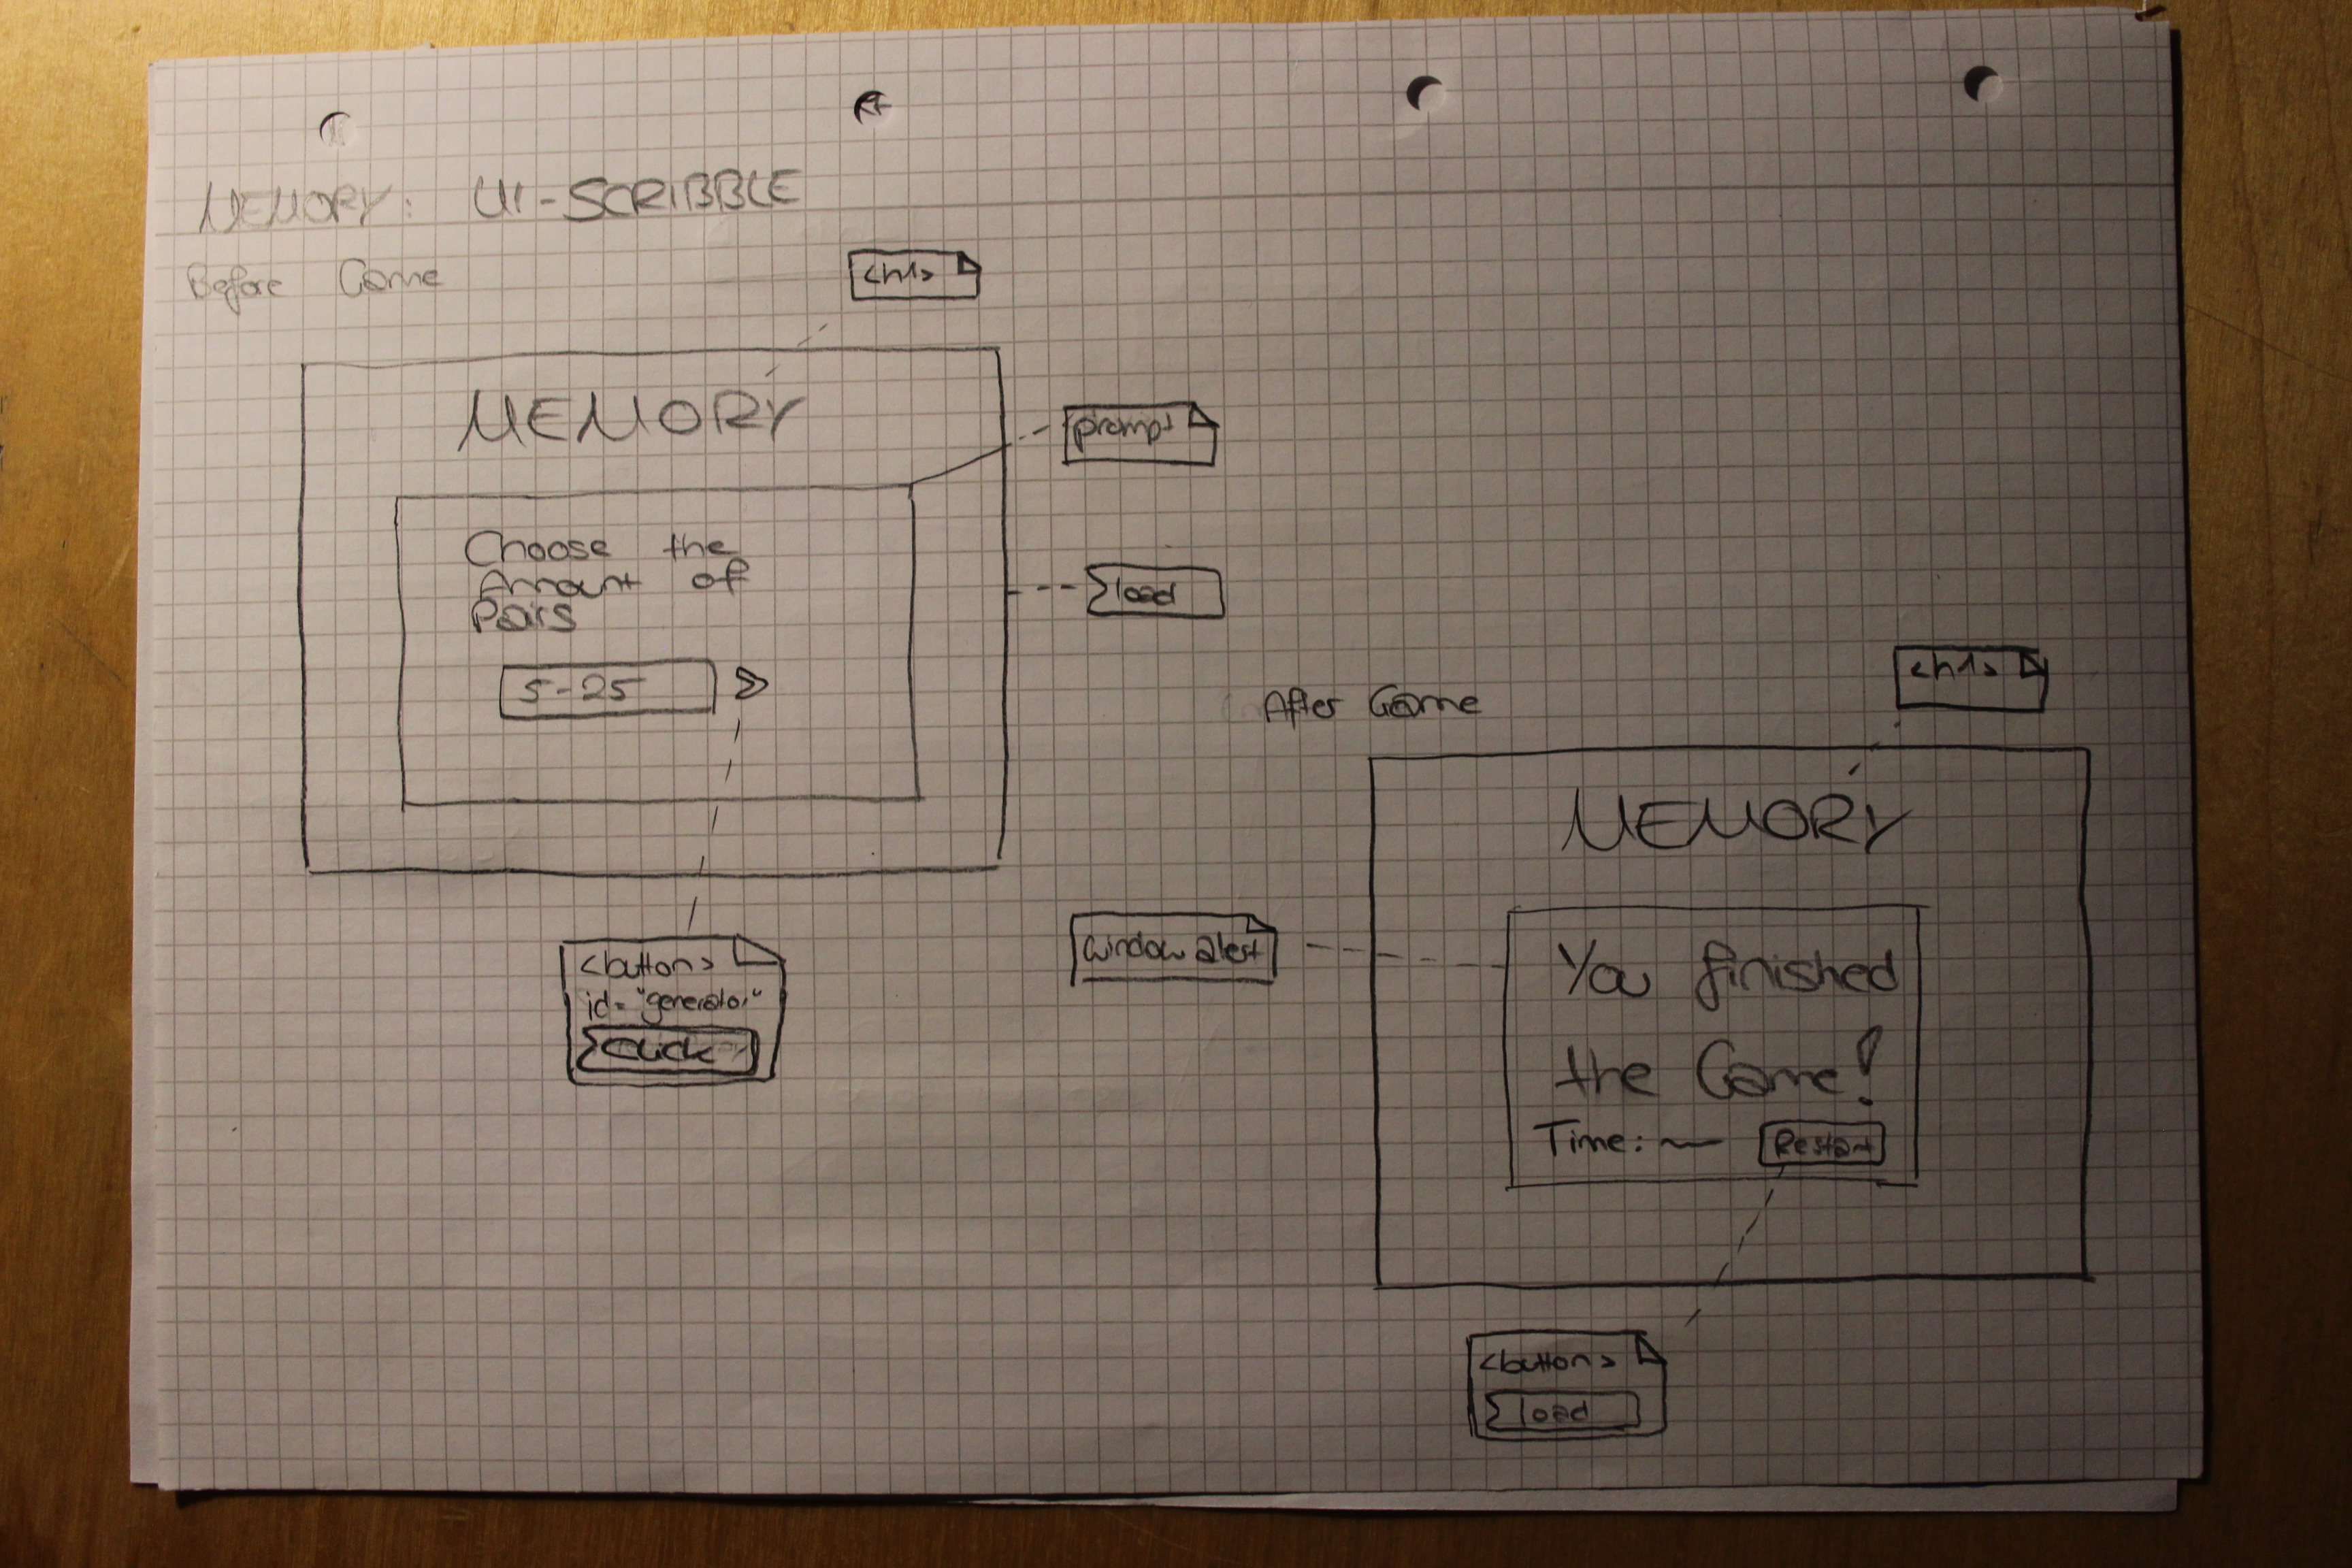 MEMORY: UI-SCRIBBLE
Before Game
<h1>
MEMORY
prompt
Choose the
Amount of
Pairs
load
5-25
<button>
id="generator"
click
After Game
<h1>
MEMORY
window alert
You finished
the Game!
Time: Restart
<button>
load